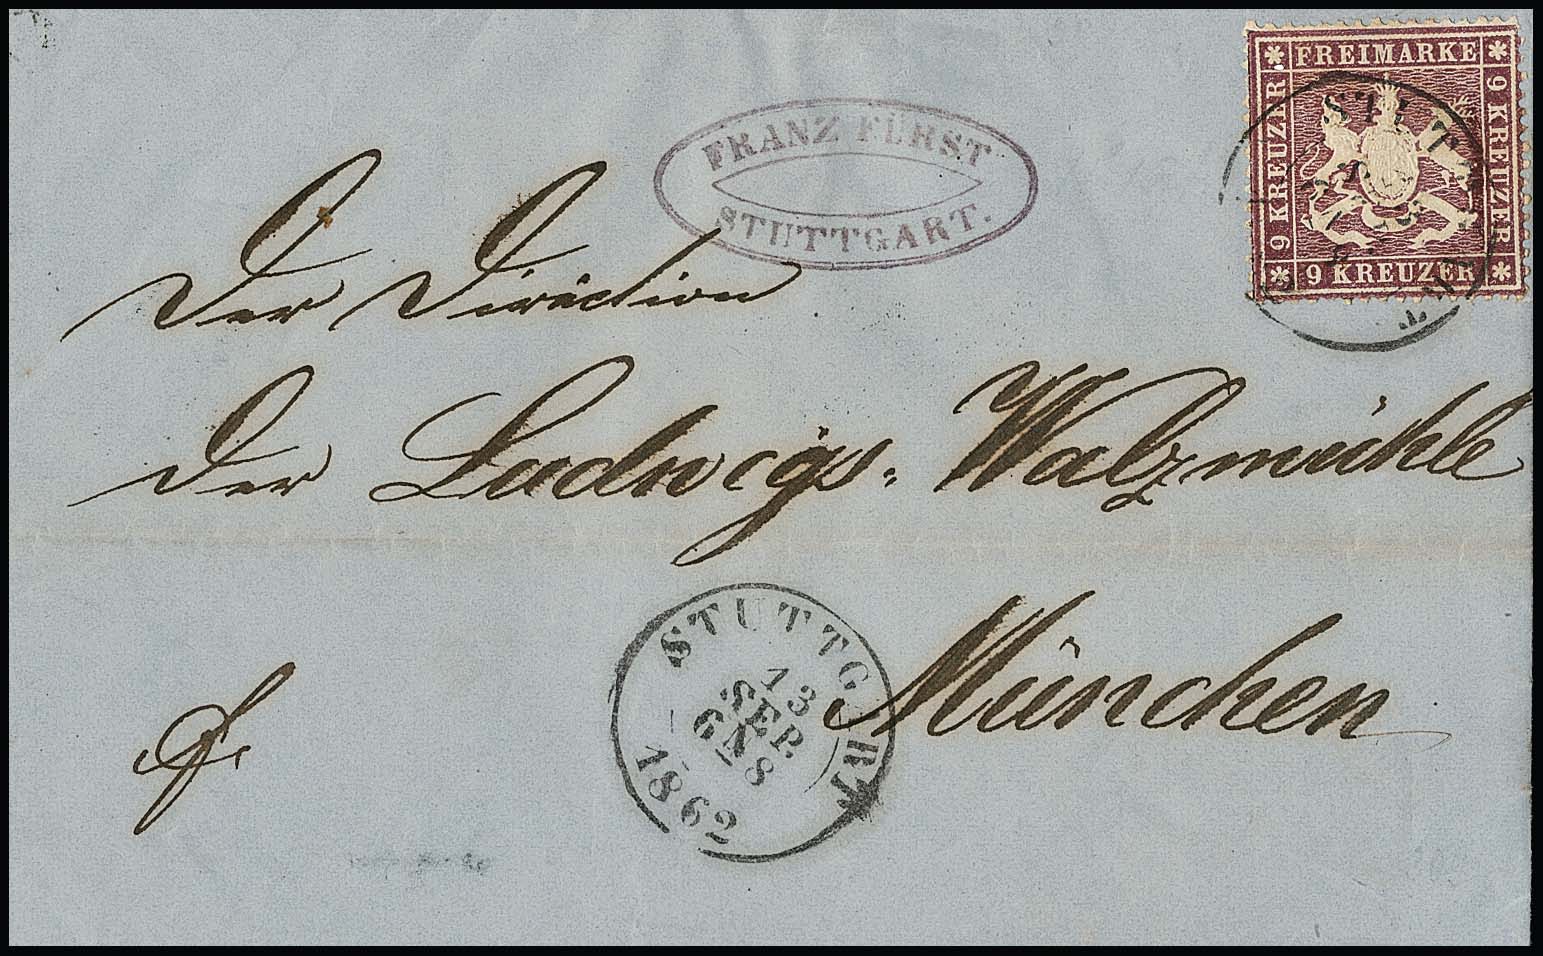 FREIMARKE
9 KREUZER
9 KREUZER
9 KREUZER
STUTTGART
FRANZ FÜRST
STUTTGART.
Der Direction
der Ludwigs-Walzmühle
München
fr
STUTTGART
13
SEP.
6 N 8
1862